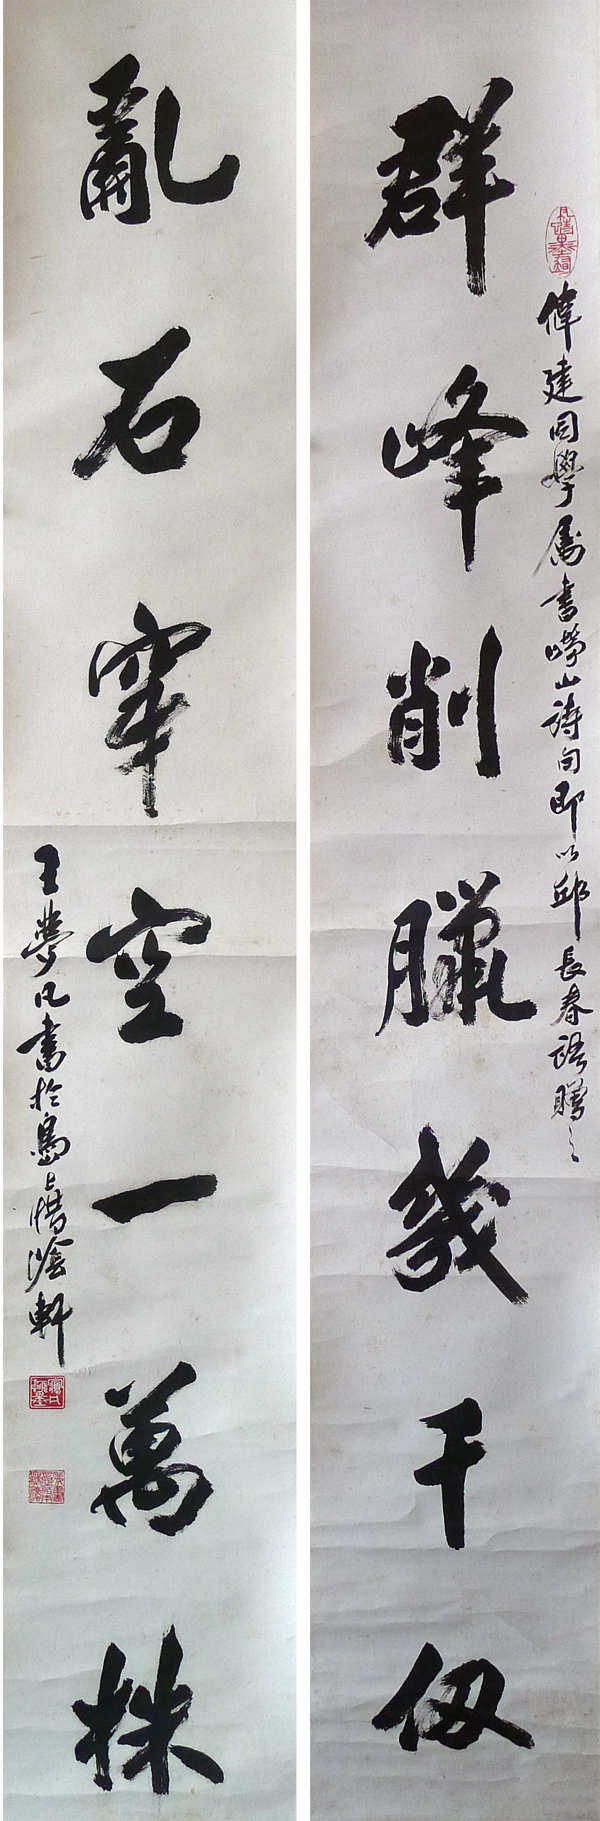 偉建同學属書嶗山詩句即以邱長春語贈之
群峰削臘幾千仞
亂石穿空一萬株
王夢凡書於島上惜陰軒